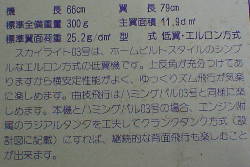 機　　　長　66cm　　翼　　　長　79cm
標準全備重量　300ｇ　　主翼面積　11,9d㎡
標準翼面荷重　25.2g/d㎡　型　　式　低翼・エルロン方式
スカイライト03号は、ホームビルトスタイルのシンプ
ルなエルロン方式の低翼機です。上反角が充分つけてあ
りますから横安定性がよく、ゆっくりズム飛行が気楽に
楽しめます。曲技飛行はハミングバル03号と同様に楽し
めます。本機とハミングバル03号の場合、エンジン附
属のラジアルタンクを工夫してクランクタンク方式（設
計図に記載）にすれば、継続的な背面飛行も楽しむこと
が出来ます。